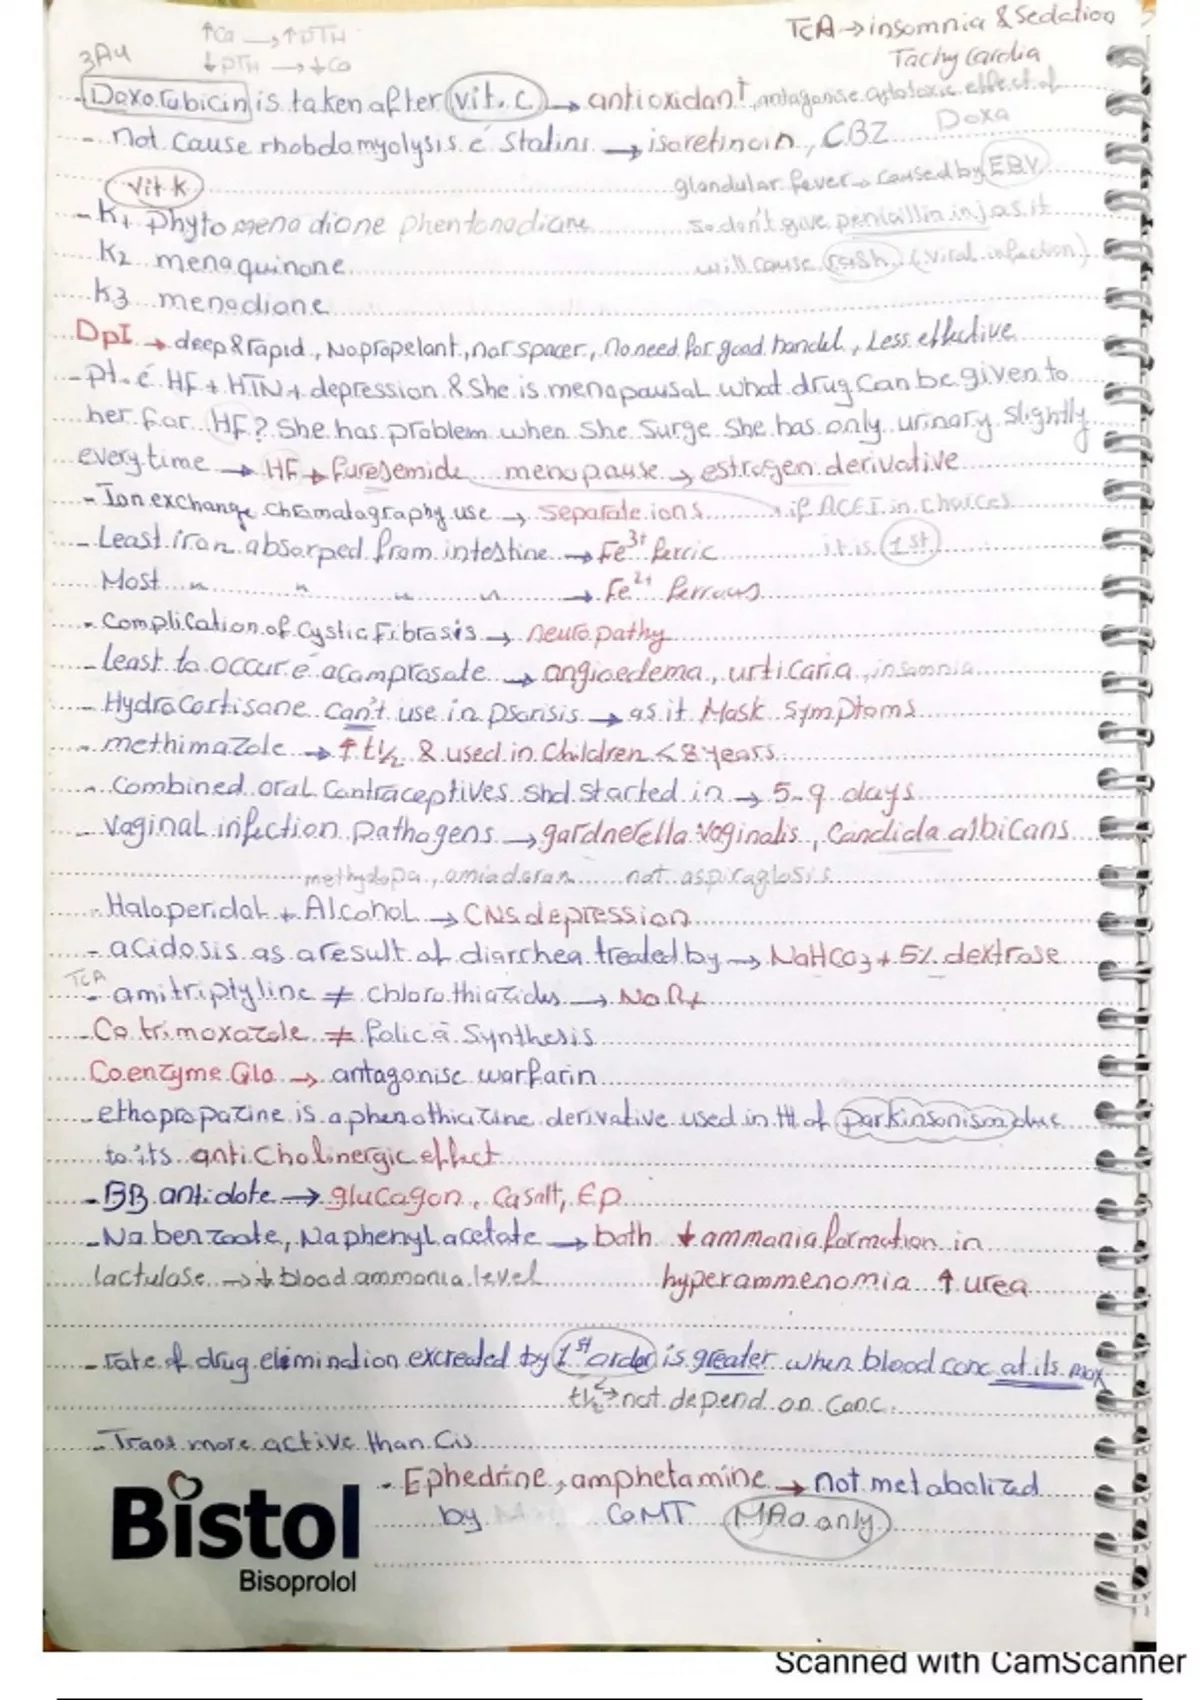 TCA → insomnia & Sedation
Tachycardia
↑Ca → ↑PTH
↓PTH → ↓Ca
- Doxorubicin is taken after vit. C → antioxidant, antagonise cytotoxic effect of Doxo
- not cause rhabdomyolysis c̄ Statins → isoretinoin, CBZ
glandular fever → caused by EBV
Vit K
- K1 phytomenadione phentonadione
so don't give penicillin inj as it
K2 menaquinone
will cause rash (viral infection)
K3 menadione
DpI → deep & rapid, No propelant, nor spacer, no need for good handel, Less effective
- pt. c̄ HF + HTN + depression & She is menopausal what drug Can be given to
her for HF? She has problem when she Surge She has only urinary slightly
every time → HF → furesemide menopause → estrogen derivative
- Ion exchange chromatography use → separate ions
if ACEI in choices
it is 1st
- Least iron absorped from intestine → Fe3+ ferric
Most " " " " → Fe2+ ferrous
- Complication of Cystic Fibrosis → neuropathy
- least to occur c̄ acamprosate → angioedema, urticaria, insomnia
- Hydrocortisone can't use in psorisis → as it Mask Symptoms
- methimazole → ↑ t½ & used in Children < 8 years
- Combined oral Contraceptives shd started in → 5-9 days
- Vaginal infection pathogens → gardnerella Vaginalis, Candida albicans
methydopa, amiadoran not aspiraglosis
- Haloperidol + Alcohol → CNS depression
- acidosis as a result of diarrhea treated by → NaHCO3 + 5% dextrose
TCA
- amitriptyline ≠ chlorothiazides → No Rx
- Co trimoxazole ≠ folic a Synthesis
Coenzyme Q10 → antagonise warfarin
- ethopropazine is a phenothiazine derivative used in ttt of parkinsonism due
to its anti Cholinergic effect
- BB antidote → glucagon, Ca salt, EP
- Na benzoate, Na phenyl acetate → both ↓ ammonia formation in
lactulose → ↓ blood ammonia level hyperammenomia ↑ urea
- rate of drug elimination excreated by 1st order is greater when blood conc at its max
t½ → not depend on Conc.
- Trans more active than Cis
- Ephedrine, amphetamine → not metabolized
by COMT MAO only
Bistol
Bisoprolol
Scanned with CamScanner